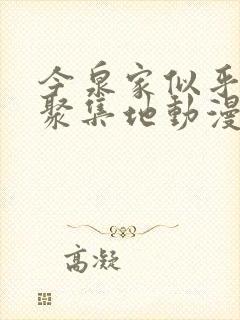 今泉家似乎
聚集地動漫
高凝